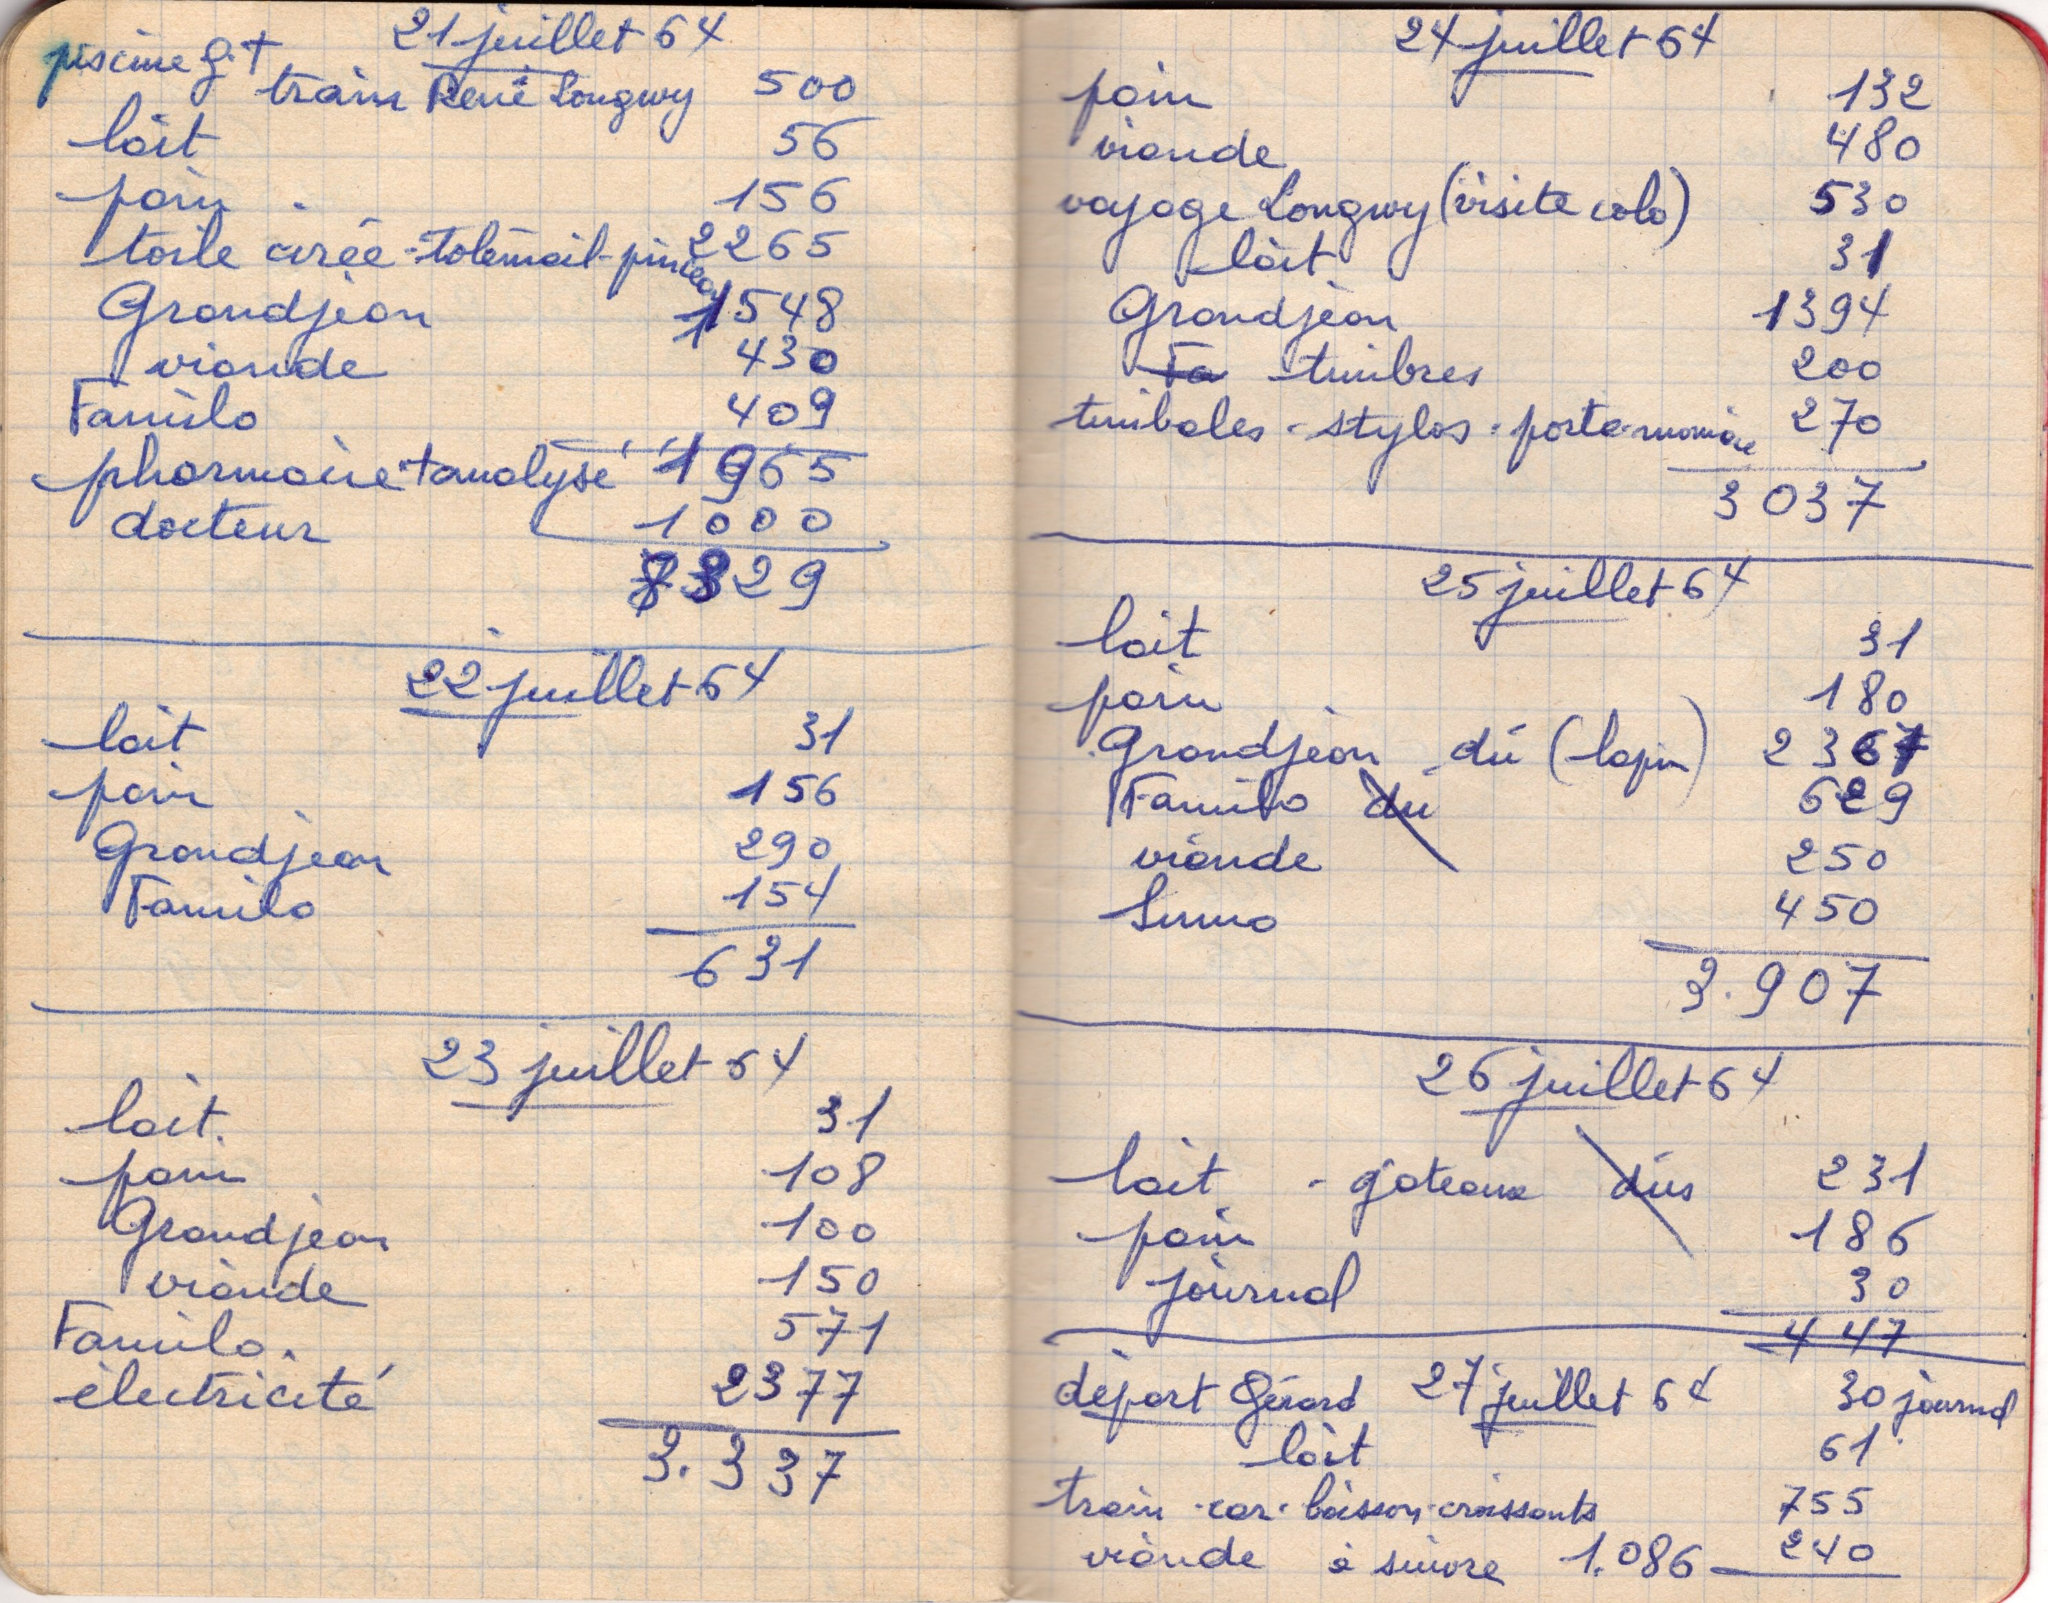 21 juillet 64
piscine g. +
train René Longwy 500
lait 56
pain 156
toile cirée - tolémail - pinceau 2265
Grandjean 1548
viande 430
Familo 409
pharmacie + analyse 1965
docteur 1000
8329
22 juillet 64
lait 31
pain 156
Grandjean 290
Familo 154
631
23 juillet 64
lait. 31
pain 108
Grandjean 100
viande 150
Familo. 571
électricité 2377
3.337
24 juillet 64
pain 132
viande 480
voyage Longwy (visite colo) 530
lait 31
Grandjean 1394
Fa timbres 200
timbales - stylos - porte-monnaie 270
3037
25 juillet 64
lait 31
pain 180
Grandjean dû (lapin) 2367
Familo dû 629
viande 250
Sumo 450
3.907
26 juillet 64
lait - gateaux dûs 231
pain 186
journal 30
447
départ Gérard 27 juillet 64 30 journal
lait 61
train - car - boisson - croissants 755
viande à suivre 1.086 240